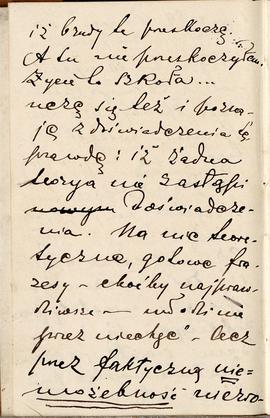 iż brudy te przeskoczę.
A tu nie przeskoczyłam.
Życie to szkoła...
uczę się też i pozna-
ję z doświadczenia tę
prawdę: iż żadna
teorya nie zastąpi
doświadcze-
nia. Na nic teore-
tyczne, gotowe fra-
zesy – choćby najpraw-
dziwsze –
przez niechęć" – lecz
przez faktyczną nie-
możebność niezro-